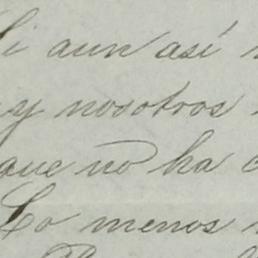 Si aun así
y nosotros
que no ha
Lo menos